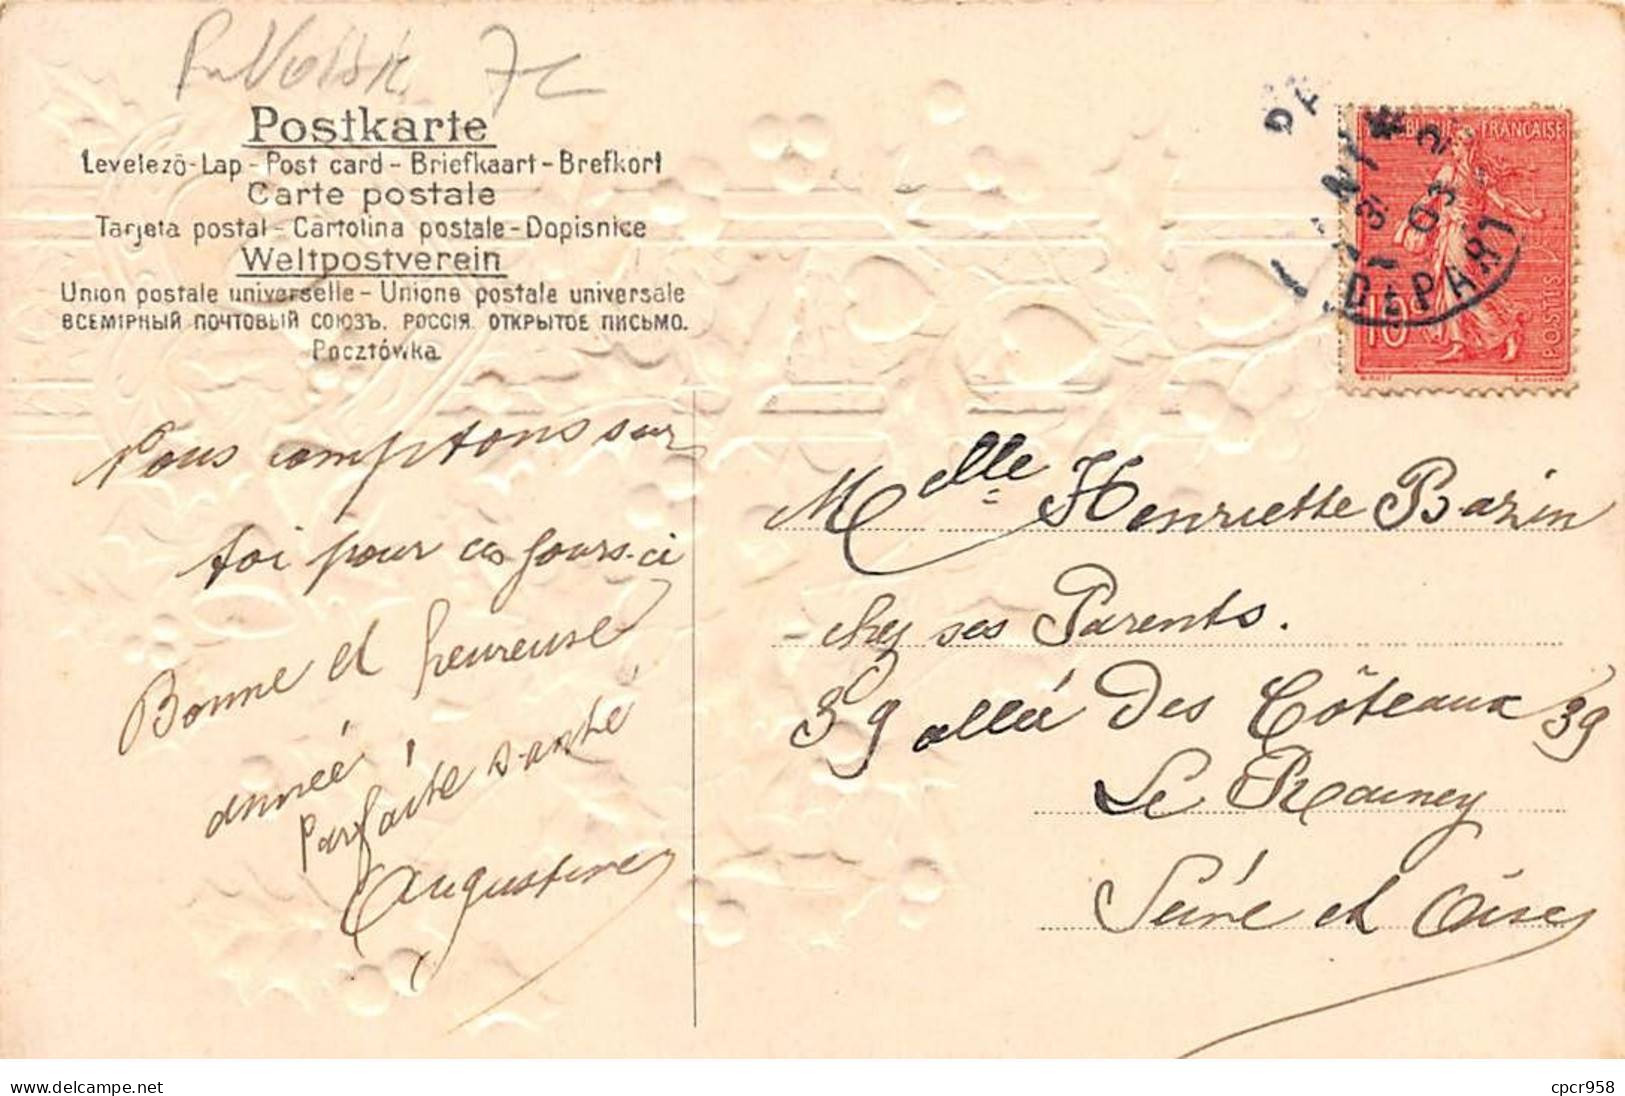 Postkarte
Levelező-Lap - Post card - Briefkaart - Brefkort
Carte postale
Tarjeta postal - Cartolina postale - Dopisnice
Weltpostverein
Union postale universelle - Unione postale universale
ВСЕМІРНЫЙ ПОЧТОВЫЙ СОЮЗЪ. РОССІЯ. ОТКРЫТОЕ ПИСЬМО.
Pocztówka.
FRANÇAISE
10
POSTES
DEPART
Nous comptons sur
toi pour ces jours-ci
Bonne et heureuse
année!
Parfaite santé
Augustine
Melle Henriette Bazin
chez ses Parents.
39 allée Des Côteaux 39
Le Raincy
Seine et Oise
www.delcampe.net
cpcr958